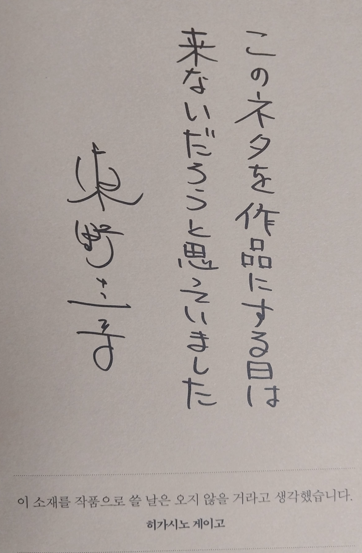 このネタを作品にする日は
来ないだろうと思っていました
東野圭吾
이 소재를 작품으로 쓸 날은 오지 않을 거라고 생각했습니다.
히가시노 게이고